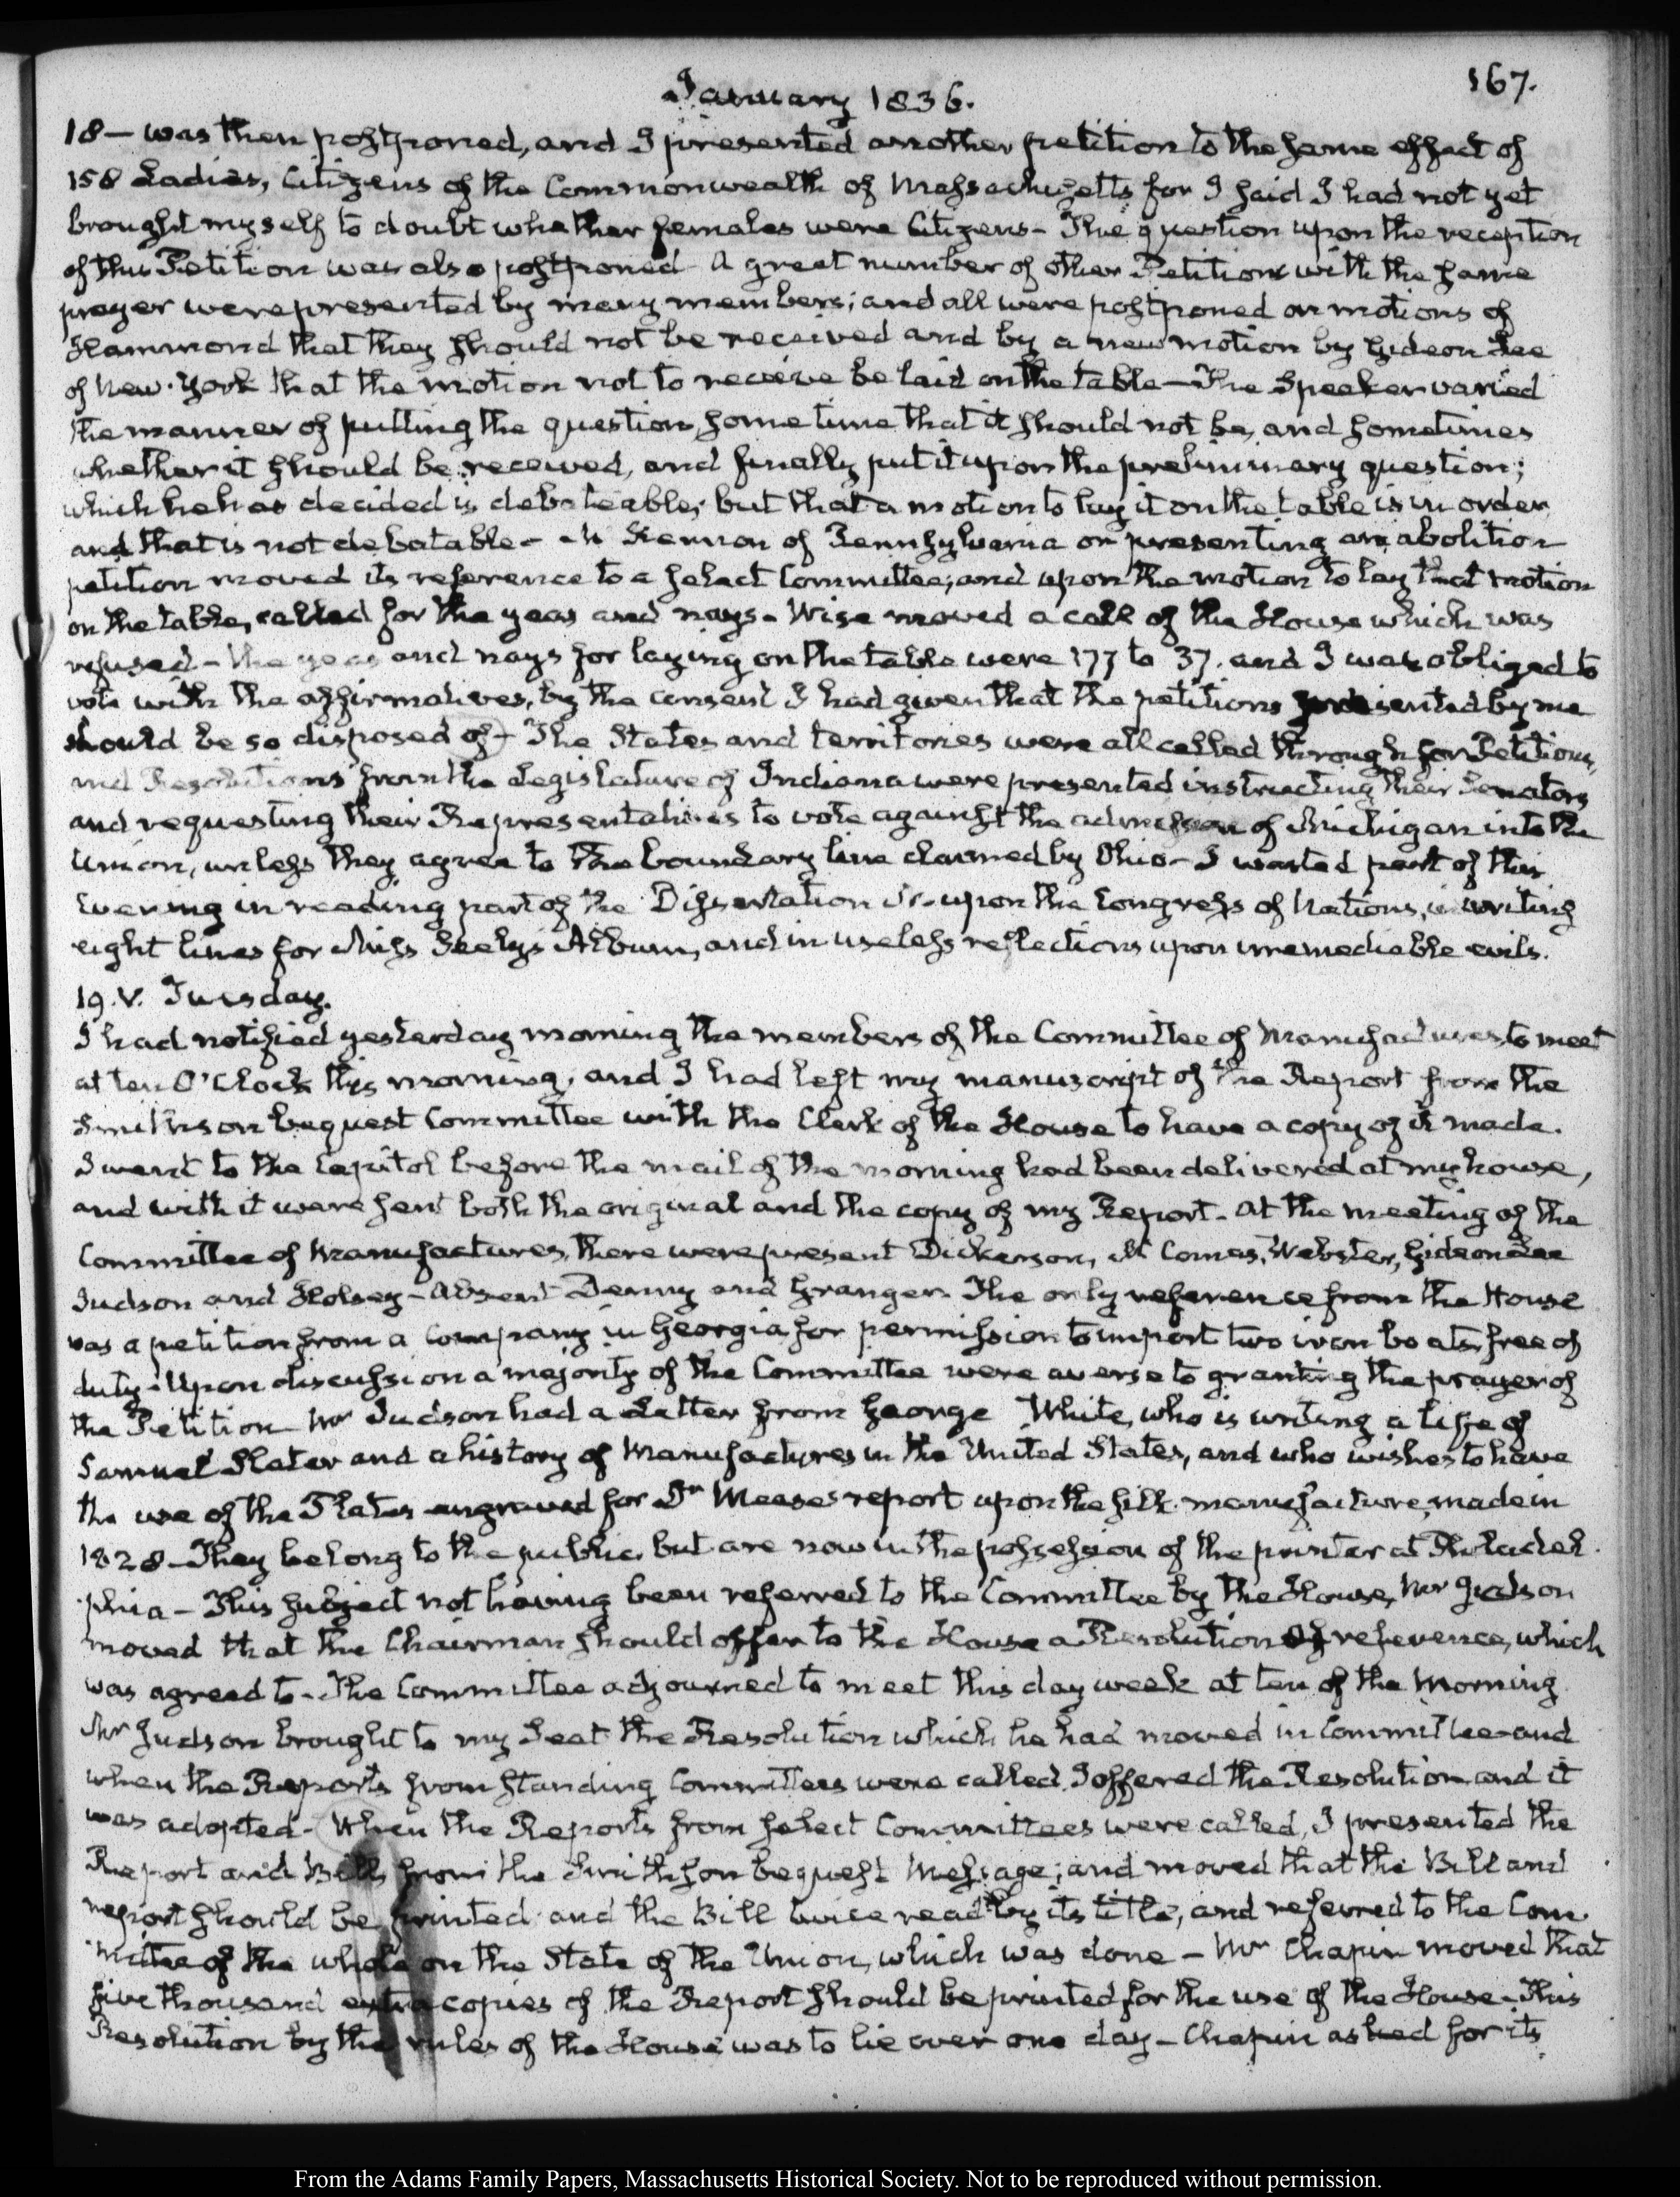 January 1836.
167.
18 — was then postponed, and I presented another petition to the same effect of
158 Ladies, Citizens of the Commonwealth of Massachusetts for I said I had not yet
brought myself to doubt whether females were Citizens - The question upon the reception
of this Petition was also postponed - A great number of other Petitions with the same
prayer were presented by many members; and all were postponed on motions of
Hammond that they should not be received and by a new motion by Gideon Lee
of New-York that the motion not to receive be laid on the table — The Speaker varied
the manner of putting the question, sometime that it should not be, and sometimes
whether it should be received, and finally put it upon the preliminary question;
which he has decided is debateable; but that a motion to lay it on the table is in order
and that is not debatable - Mr Kennon of Pennsylvania on presenting an abolition
petition moved its reference to a select Committee; and upon the motion to lay that motion
on the table, called for the yeas and nays - Wise moved a call of the House which was
refused - the yeas and nays for laying on the table were 177 to 37. and I was obliged to
vote with the affirmatives, by the consent I had given that the petitions presented by me
should be so disposed of - The States and territories were all called through for Petitions,
and Resolutions from the Legislature of Indiana were presented instructing their Senators
and requesting their Representatives to vote against the admission of Michigan into the
Union, unless they agree to the boundary line claimed by Ohio - I wasted part of this
Evening in reading part of the Dissertation upon the Congress of Nations, in writing
eight lines for Miss Seely's Album, and in useless reflections upon irremediable evils.
19. V. Tuesday.
I had notified yesterday morning the members of the Committee of Manufactures to meet
at ten O'Clock this morning, and I had left my manuscript of the Report from the
Smithson bequest Committee with the Clerk of the House to have a copy of it made.
I went to the Capitol before the mail of the morning had been delivered at my house,
and with it were sent both the original and the copy of my Report - At the meeting of the
Committee of Manufactures, there were present Dickerson, Mc Comas, Webster, Gideon Lee
Judson and Holsey - Absent Denny and Granger. The only reference from the House
was a petition from a Company in Georgia for permission to import two iron boats, free of
duty - Upon discussion a majority of the Committee were averse to granting the prayer of
the Petition - Mr Judson had a Letter from George White, who is writing a life of
Samuel Slater and a history of Manufactures in the United States, and who wishes to have
the use of the Plates engraved for Dr Mease's report upon the silk manufacture, made in
1828 - They belong to the public, but are now in the possession of the printer at Philadel-
phia - This subject not having been referred to the Committee by the House, Mr Judson
moved that the Chairman should offer to the House a Resolution of reference, which
was agreed to - The Committee adjourned to meet this day week at ten of the Morning
Mr Judson brought to my Seat the Resolution which he had moved in Committee and
when the Reports from standing Committees were called I offered the Resolution and it
was adopted - When the Reports from select Committees were called, I presented the
Report and Bill from the Smithson bequest Message; and moved that the Bill and
report should be printed and the Bill twice read by its title, and referred to the Com-
mittee of the whole on the State of the Union, which was done — Mr Chapin moved that
five thousand extra copies of the Report should be printed for the use of the House - This
Resolution by the rules of the House was to lie over one day - Chapin asked for its
From the Adams Family Papers, Massachusetts Historical Society. Not to be reproduced without permission.